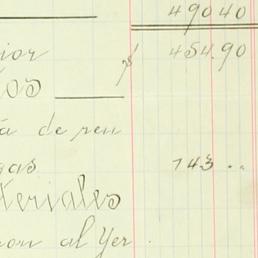 49040
ior $ 454.90
os
a de ren
gas 743 ..
teriales
on al Yer